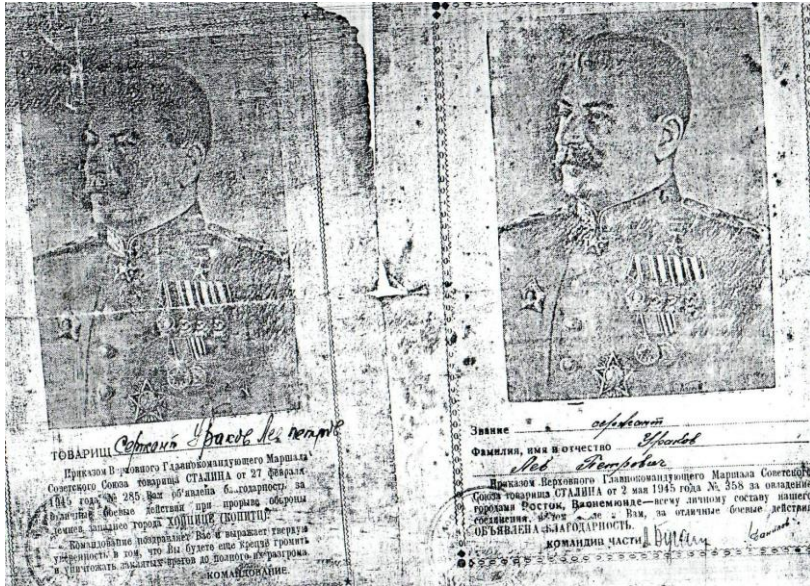 ТОВАРИЩ Сержант Ураков Лев
Приказом Верховного Главнокомандующего Маршала
Советского Союза товарища СТАЛИНА от 27 февраля
1945 года № 285 Вам об'явлена благодарность за
отличные боевые действия при прорыве обороны
немцев западнее города ХОЙНИЦЕ (КОНИТЦ)
Командование поздравляет Вас и выражает твердую
уверенность в том, что Вы будете еще крепче громить
и уничтожать заклятых врагов до полного их разгрома.
КОМАНДОВАНИЕ.
Звание сержант
Фамилия, имя и отчество Ураков
Лев Петрович
Приказом Верховного Главнокомандующего Маршала Советского
Союза товарища СТАЛИНА от 2 мая 1945 года № 358 за овладение
городами Росток, Варнемюнде—всему личному составу нашего
соединения, в том Вам, за отличные боевые действия
ОБЪЯВЛЕНА БЛАГОДАРНОСТЬ.
КОМАНДИР ЧАСТИ